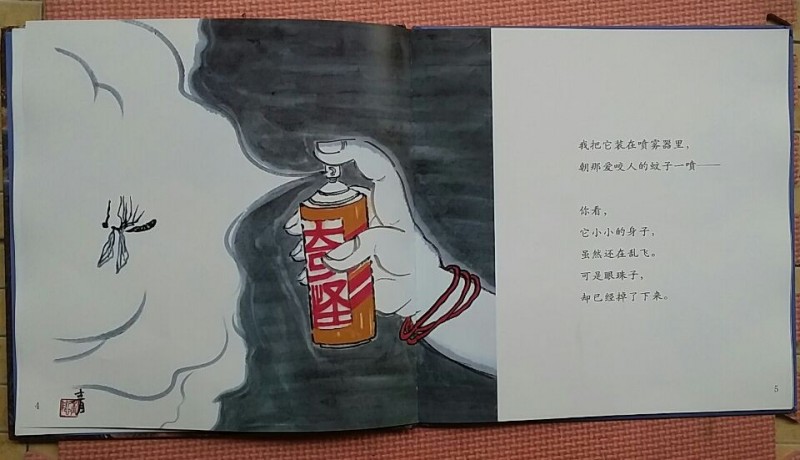 奇怪
4
我把它装在喷雾器里，
朝那爱咬人的蚊子一喷——
你看，
它小小的身子，
虽然还在乱飞。
可是眼珠子，
却已经掉了下来。
5